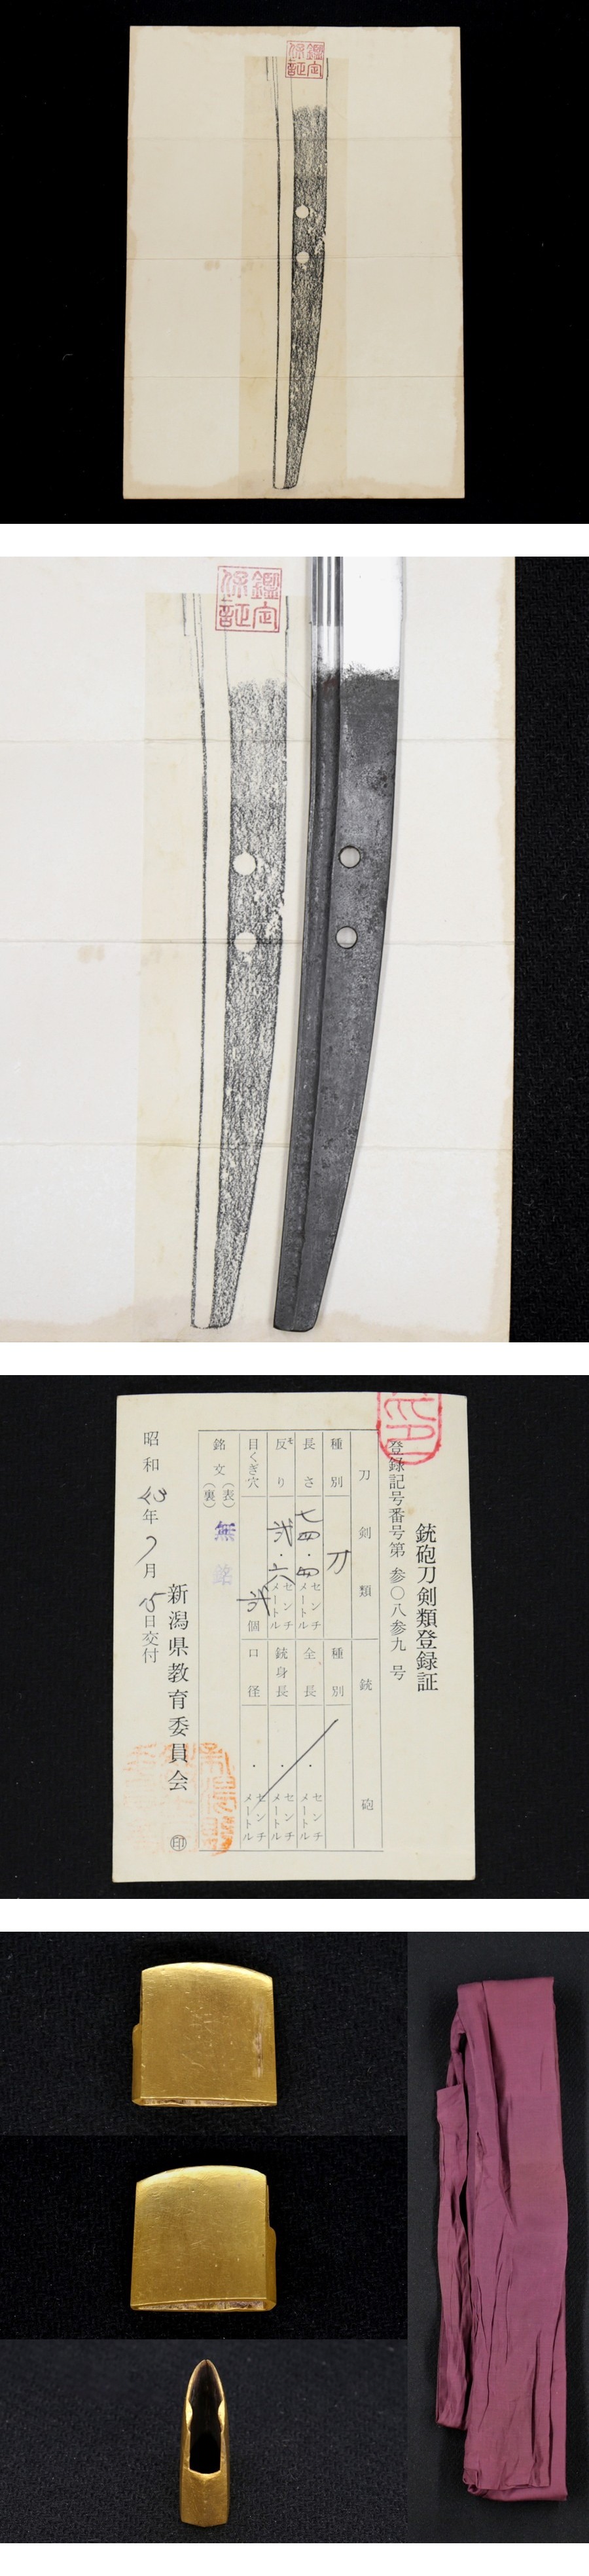 鑑定
保証
鑑定
保証
銃砲刀剣類登録証
登録記号番号第 参〇八参九 号
刀剣類
銃砲
種別 刀
種別
長さ 七四.四 センチメートル
全長 . センチメートル
反り ソ 弐.六 センチメートル
銃身長 . センチメートル
目くぎ穴 弐 個
口径 . センチメートル
銘文 (表) (裏) 無銘
昭和43年 月15日交付
新潟県教育委員会 印